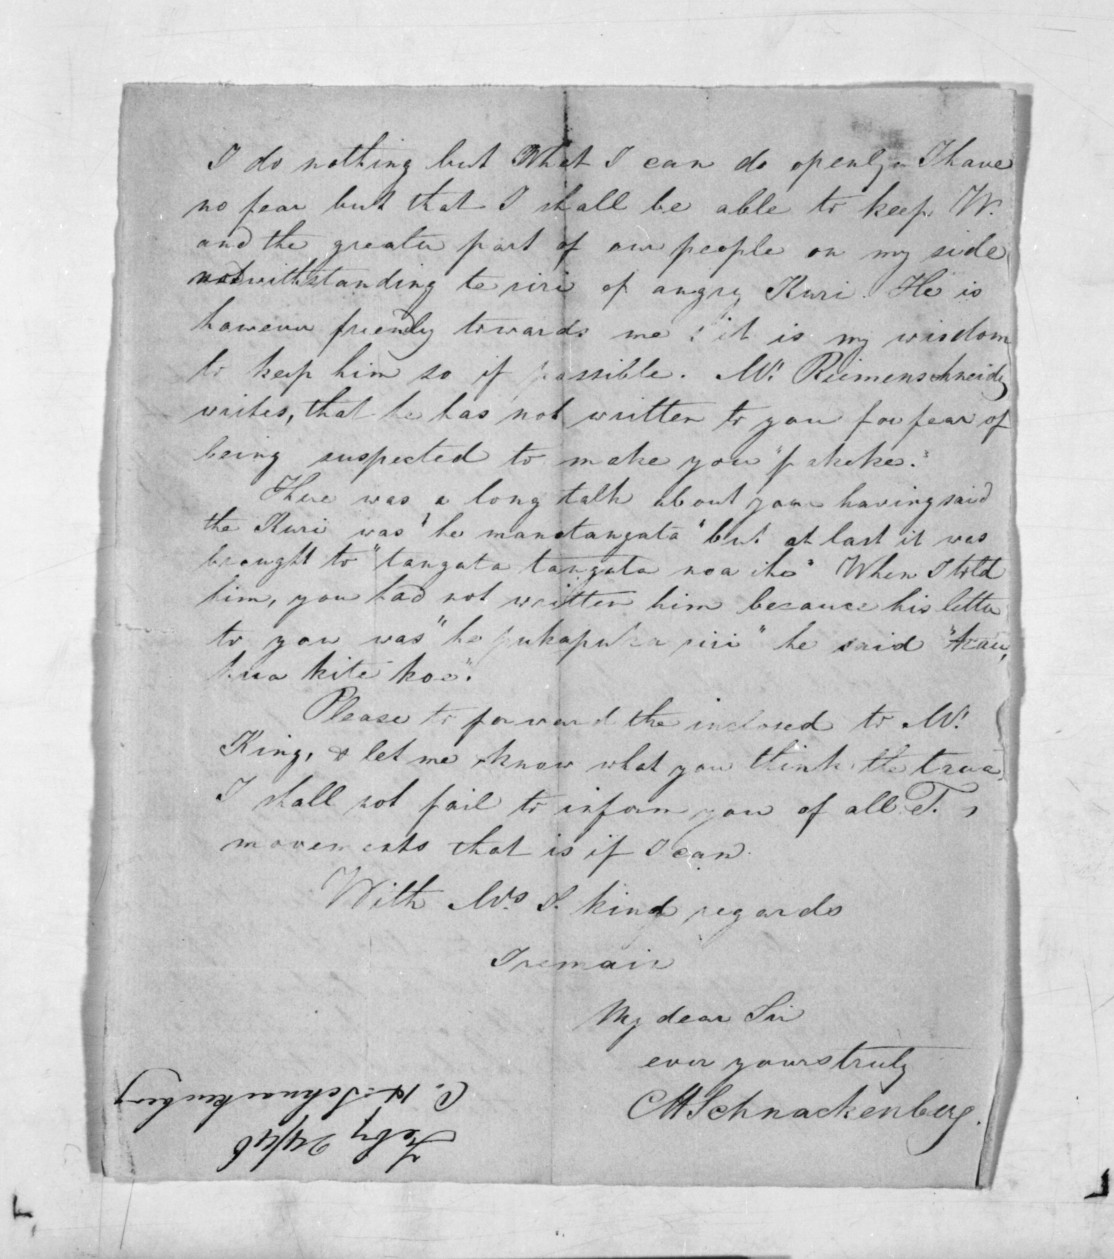 I do nothing but what I can do openly. I have
no fear but that I shall be able to keep W.
and the greater part of our people on my side
notwithstanding te riri of angry Kuri. He is
however friendly towards me; it is my wisdom
to keep him so if possible. Mr. Riemenschneider
writes, that he has not written to you for fear of
being suspected to make you "pakeke."
There was a long talk about your having said
the Kuri was "he manotangata" but at last it was
brought to "tangata tangata noa iho" When I told
him, you had not written him because his letter
to you was "he pukapuka riri" he said
kua kite koe".
Please to forward the inclosed to Mr.
King, & let me know what you think the
I shall not fail to inform you of all T.s
movements that is if I can.
With Mrs S. kind regards
I remain
My dear Sir
ever yours truly
CHSchnackenberg.
C. H. Schnackenberg
Feby 24/46